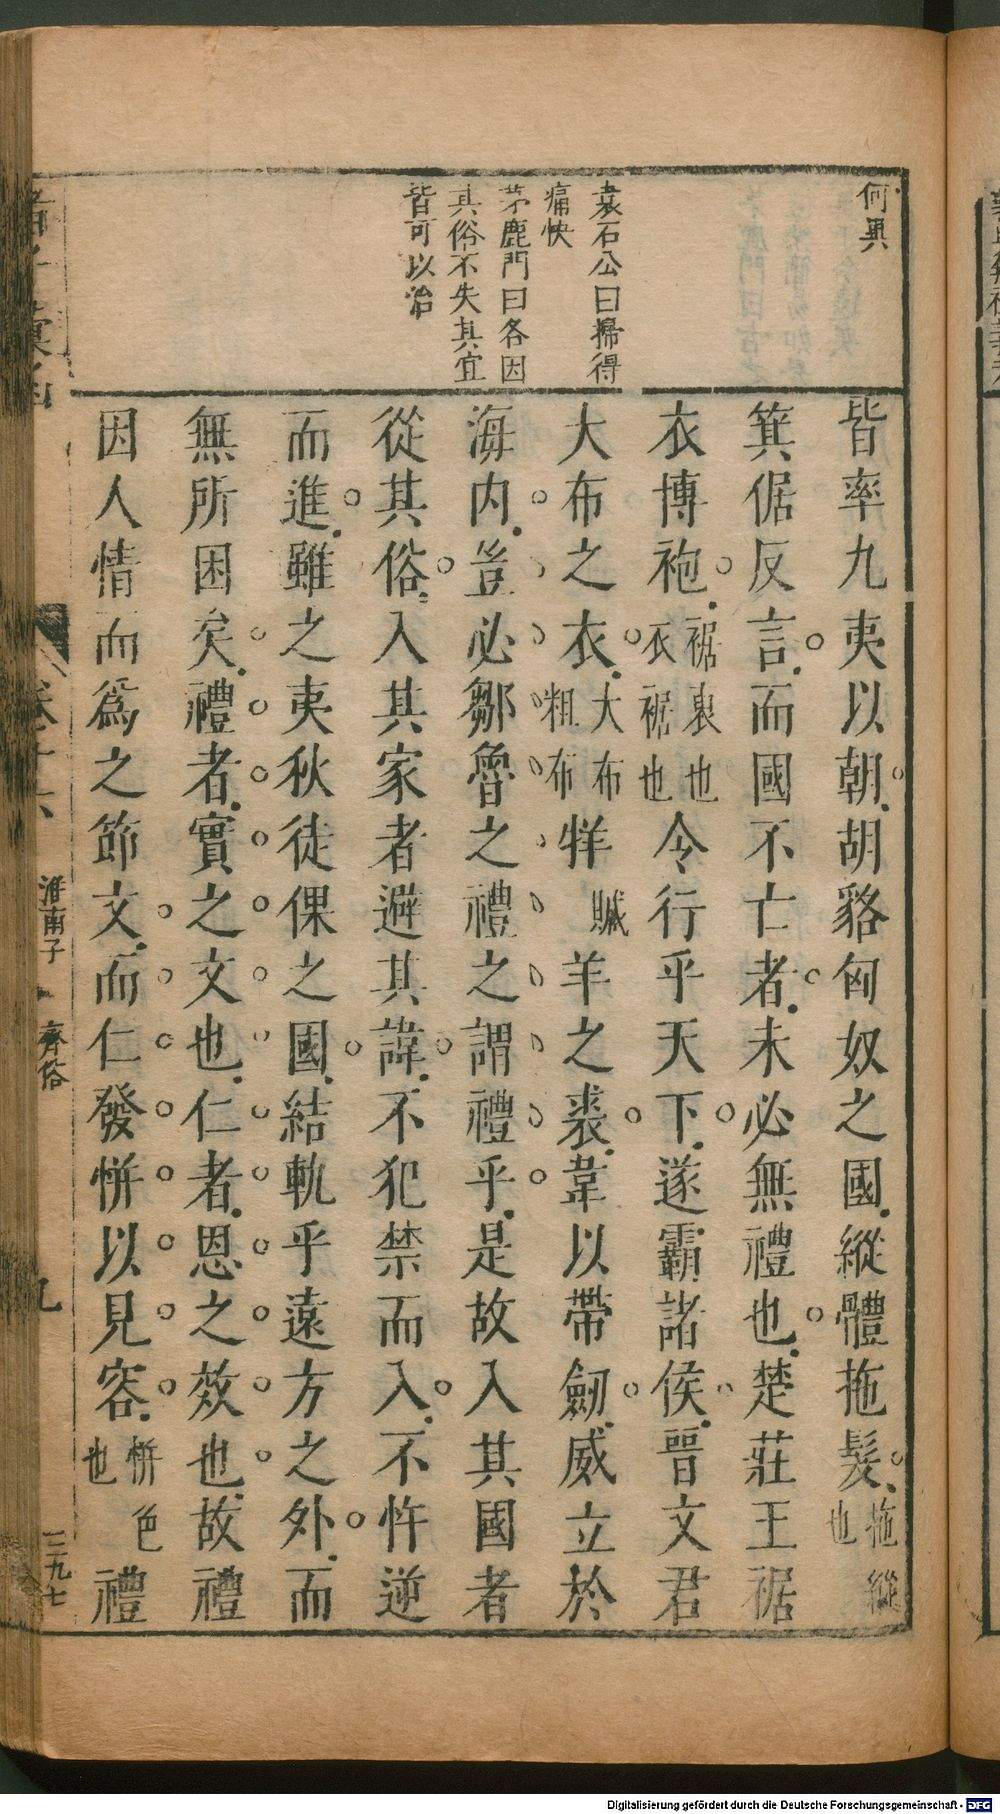 何異
袁石公曰掃得
痛快
茅鹿門曰各因
其俗不失其宜
皆可以治
皆率九夷以朝胡貉匈奴之國縱體拖髮拖縱也
箕倨反言而國不亡者未必無禮也楚莊王裾
衣博袍裾裒也衣裾也令行乎天下遂霸諸侯晉文君
大布之衣大布粗布牂䍧羊之裘韋以帶劒威立於
海內豈必鄒魯之禮之謂禮乎是故入其國者
從其俗入其家者避其諱不犯禁而入不忤逆
而進雖之夷狄徒倮之國結軌乎遠方之外而
無所困矣禮者實之文也仁者恩之效也故禮
因人情而爲之節文而仁發恲以見容恲色也禮
卷十六
淮南子 齊俗
九
三九七
Digitalisierung gefördert durch die Deutsche Forschungsgemeinschaft - DFG